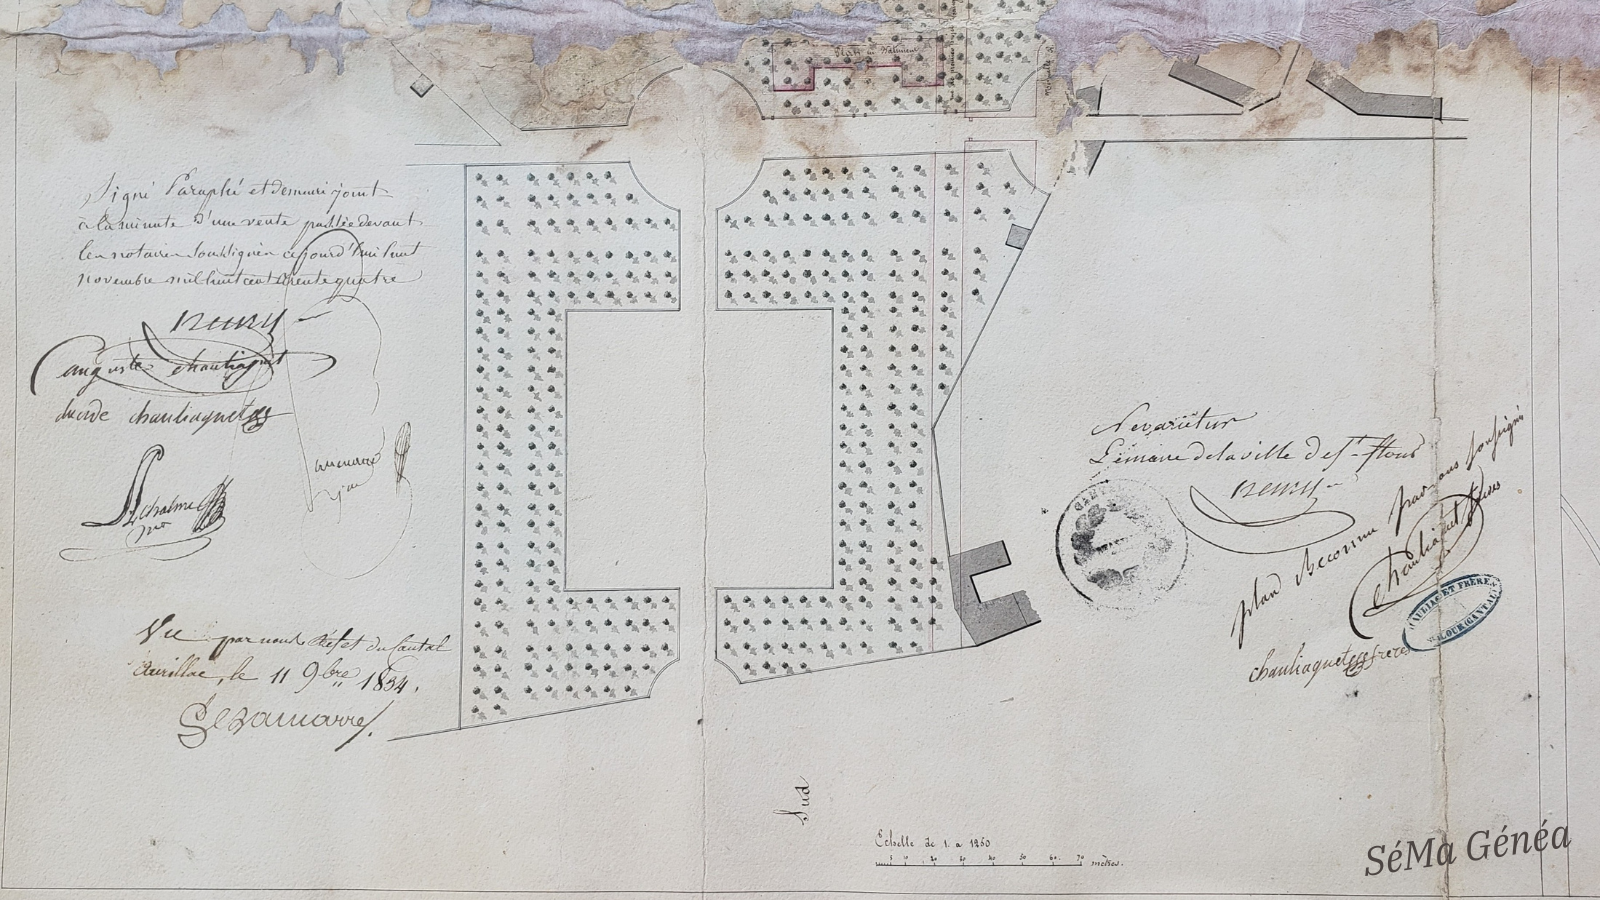 Place du Bâtiment
Signé Paraphé et demeuré joint
à la minute d'une vente passée devant
les notaires soussignés cejourd'hui huit
novembre mil huit cent trente quatre
auguste chauliaguet
chauliaguet
Vu par nous Préfet du Cantal
Aurillac, le 11 9bre 1834.
Ne varietur
Le maire de la ville de St flour
plan reconnu par nous soussignés
chauliaguet frères
chauliaguet frères
ET FRÈRE
ST FLOUR (CANTAL)
Sud
Echelle de 1. a 1250
5 10 20 30 40 50 60. 70 mètres.
SéMa Généa